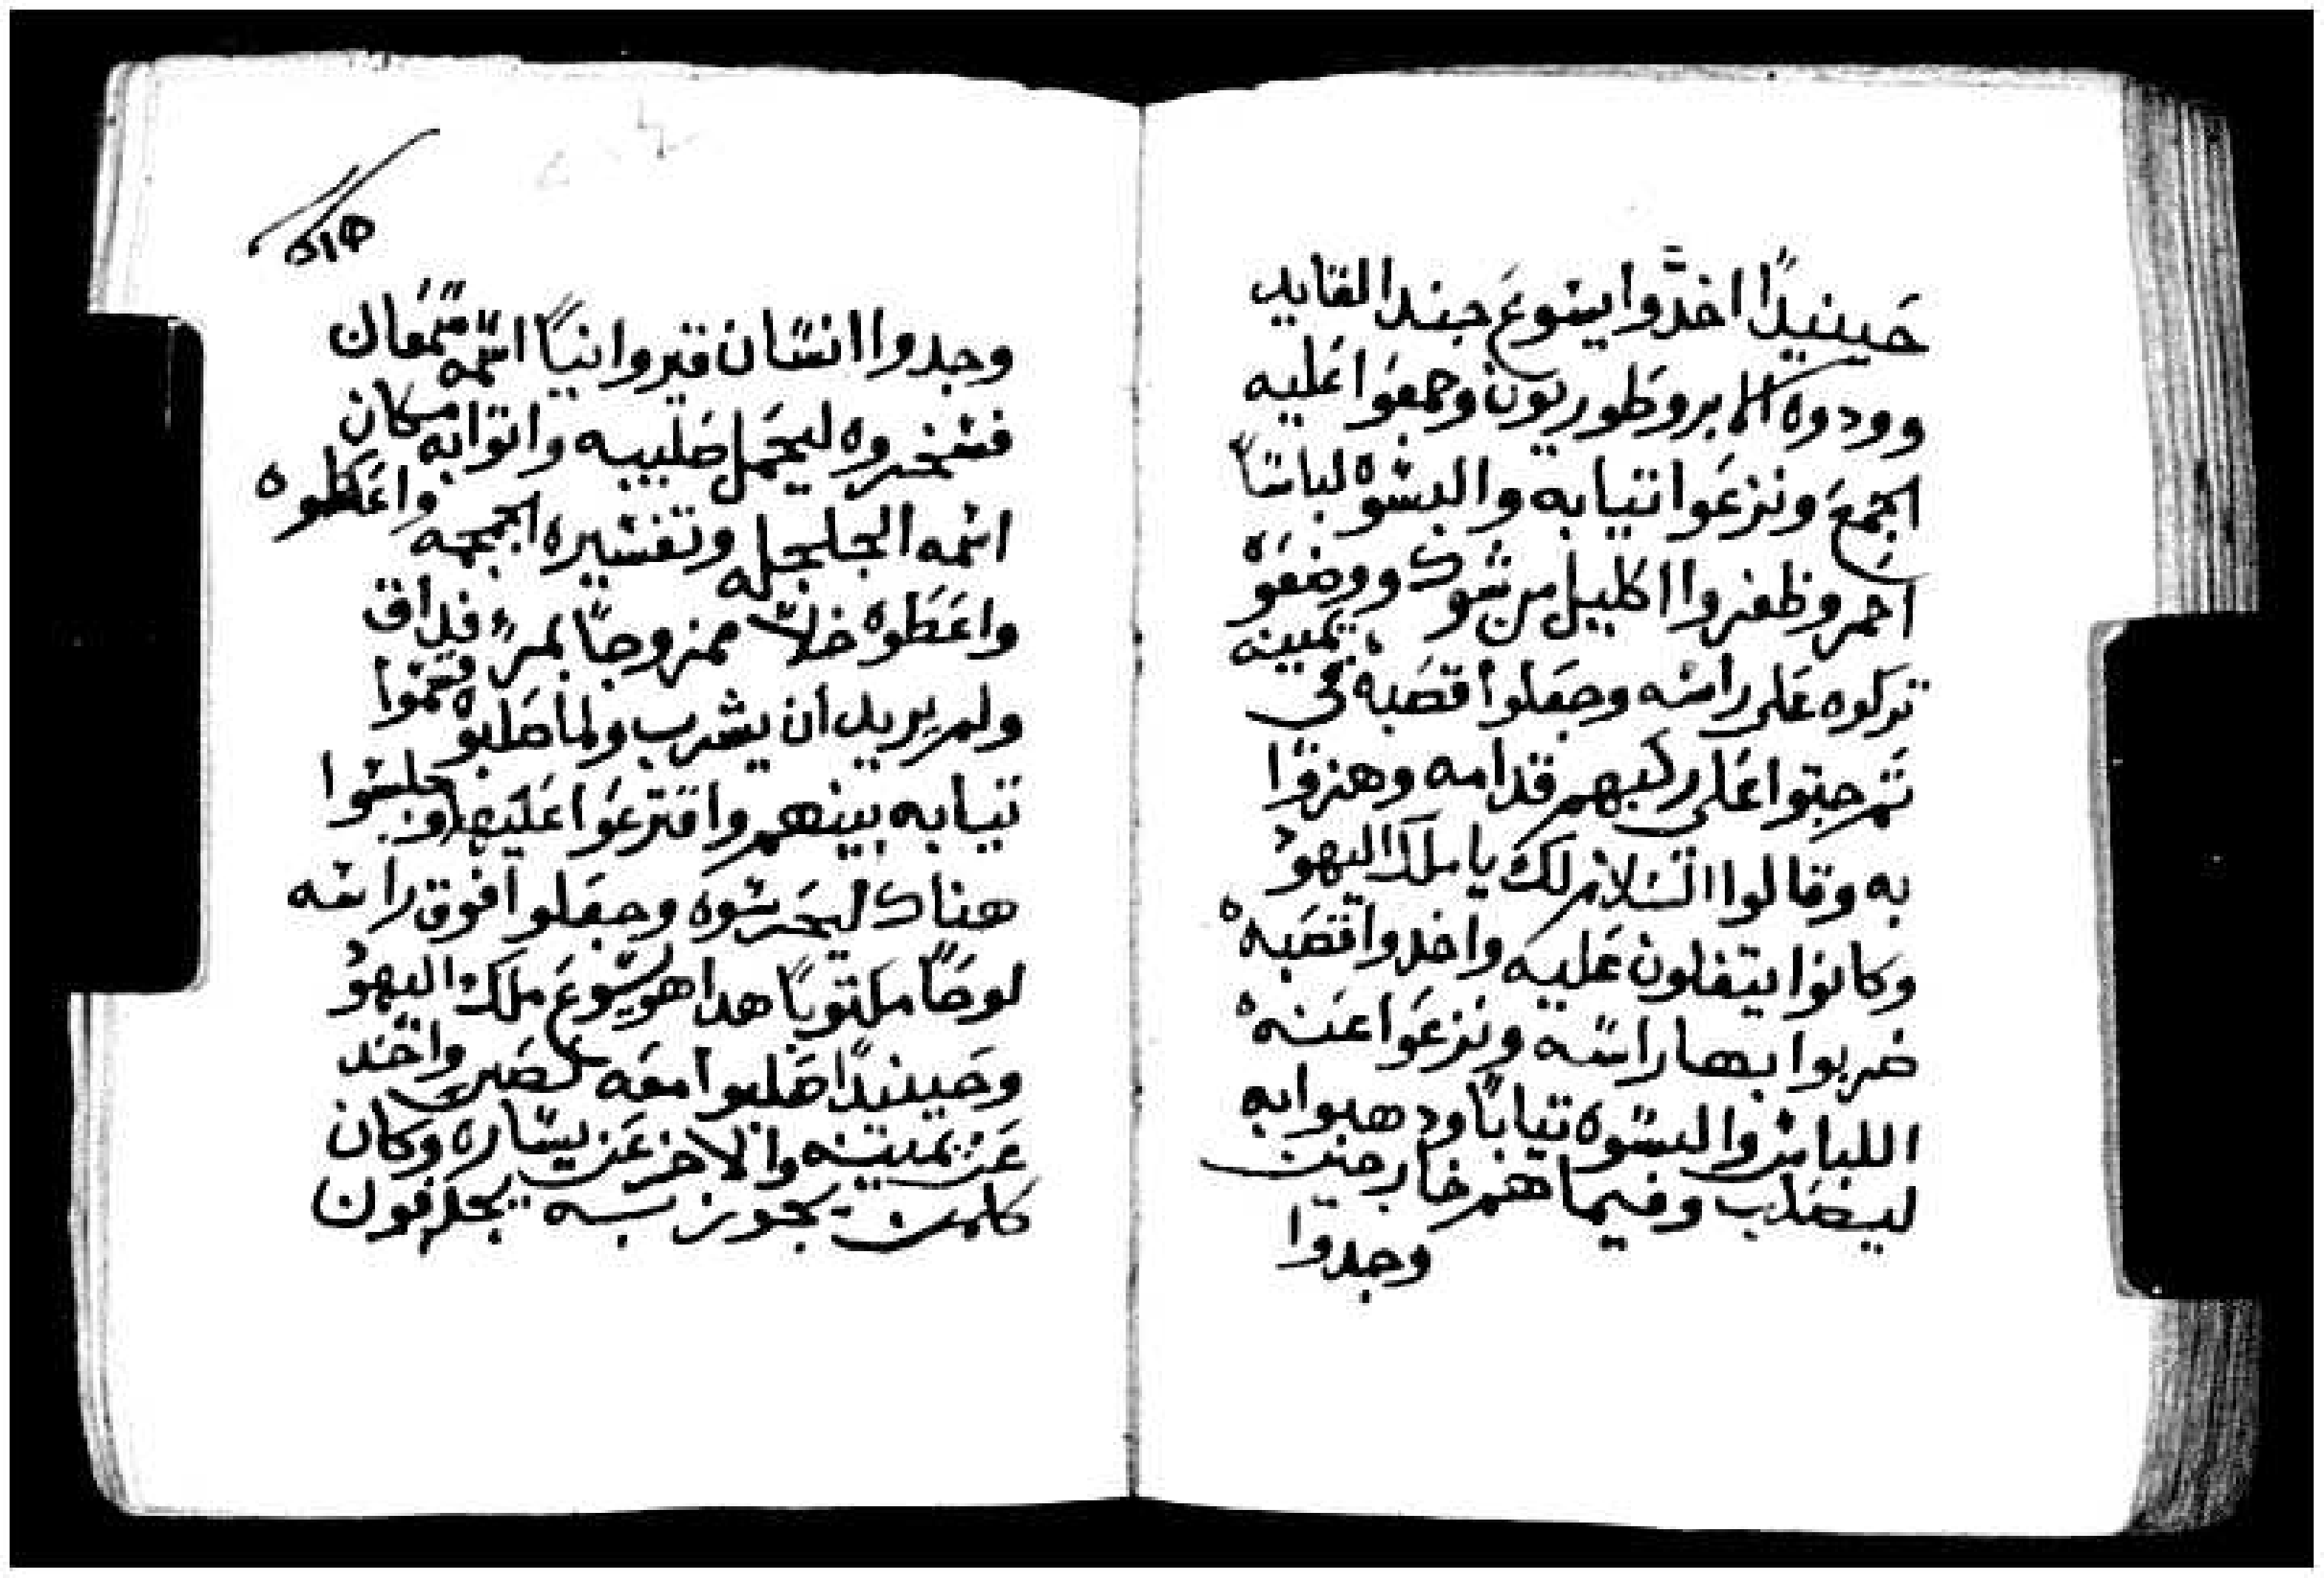 حينيدًا اخدوا يسوع جند القايد
وودوه الابروطوريون وجمعوا عليه
الجمع ونزعوا تيابه والبسوه لباسًا
احمر وظفروا اكليل من شوك ووضعوه
تركوه على راسه وجعلوا قصبه في يمينه
تم جتوا على ركبهم قدامه وهزوا
به وقالوا السلام لك يا ملك اليهود
وكانوا يتفلون عليه واخدوا قصبه
ضربوا بها راسه ونزعوا عنه
اللباس والبسوه تيابًا ودهبوا به
ليصلب وفيما هم خارجين
وجدوا
٥١٥
وجدوا انسان قيروانيًا اسمه سمعان
فسخروه ليحمل صليبه واتوا به مكان
اسمه الجلجله وتفسيره الجمجمه واعطوه
واعطوه خلًا ممزوجًا بمر فداق
ولم يريد ان يشرب ولما صلبوه قسموا
تيابه بينهم واقترعوا عليها وجلسوا
هناك ليحرسوه وجعلوا فوق راسه
لوحًا مكتوبًا هدا هو يسوع ملك اليهود
وحينيدًا صلبوا معه لصين واحد
عن يمينه والاخر عن يساره وكان
كلمن يجوز به يجدفون